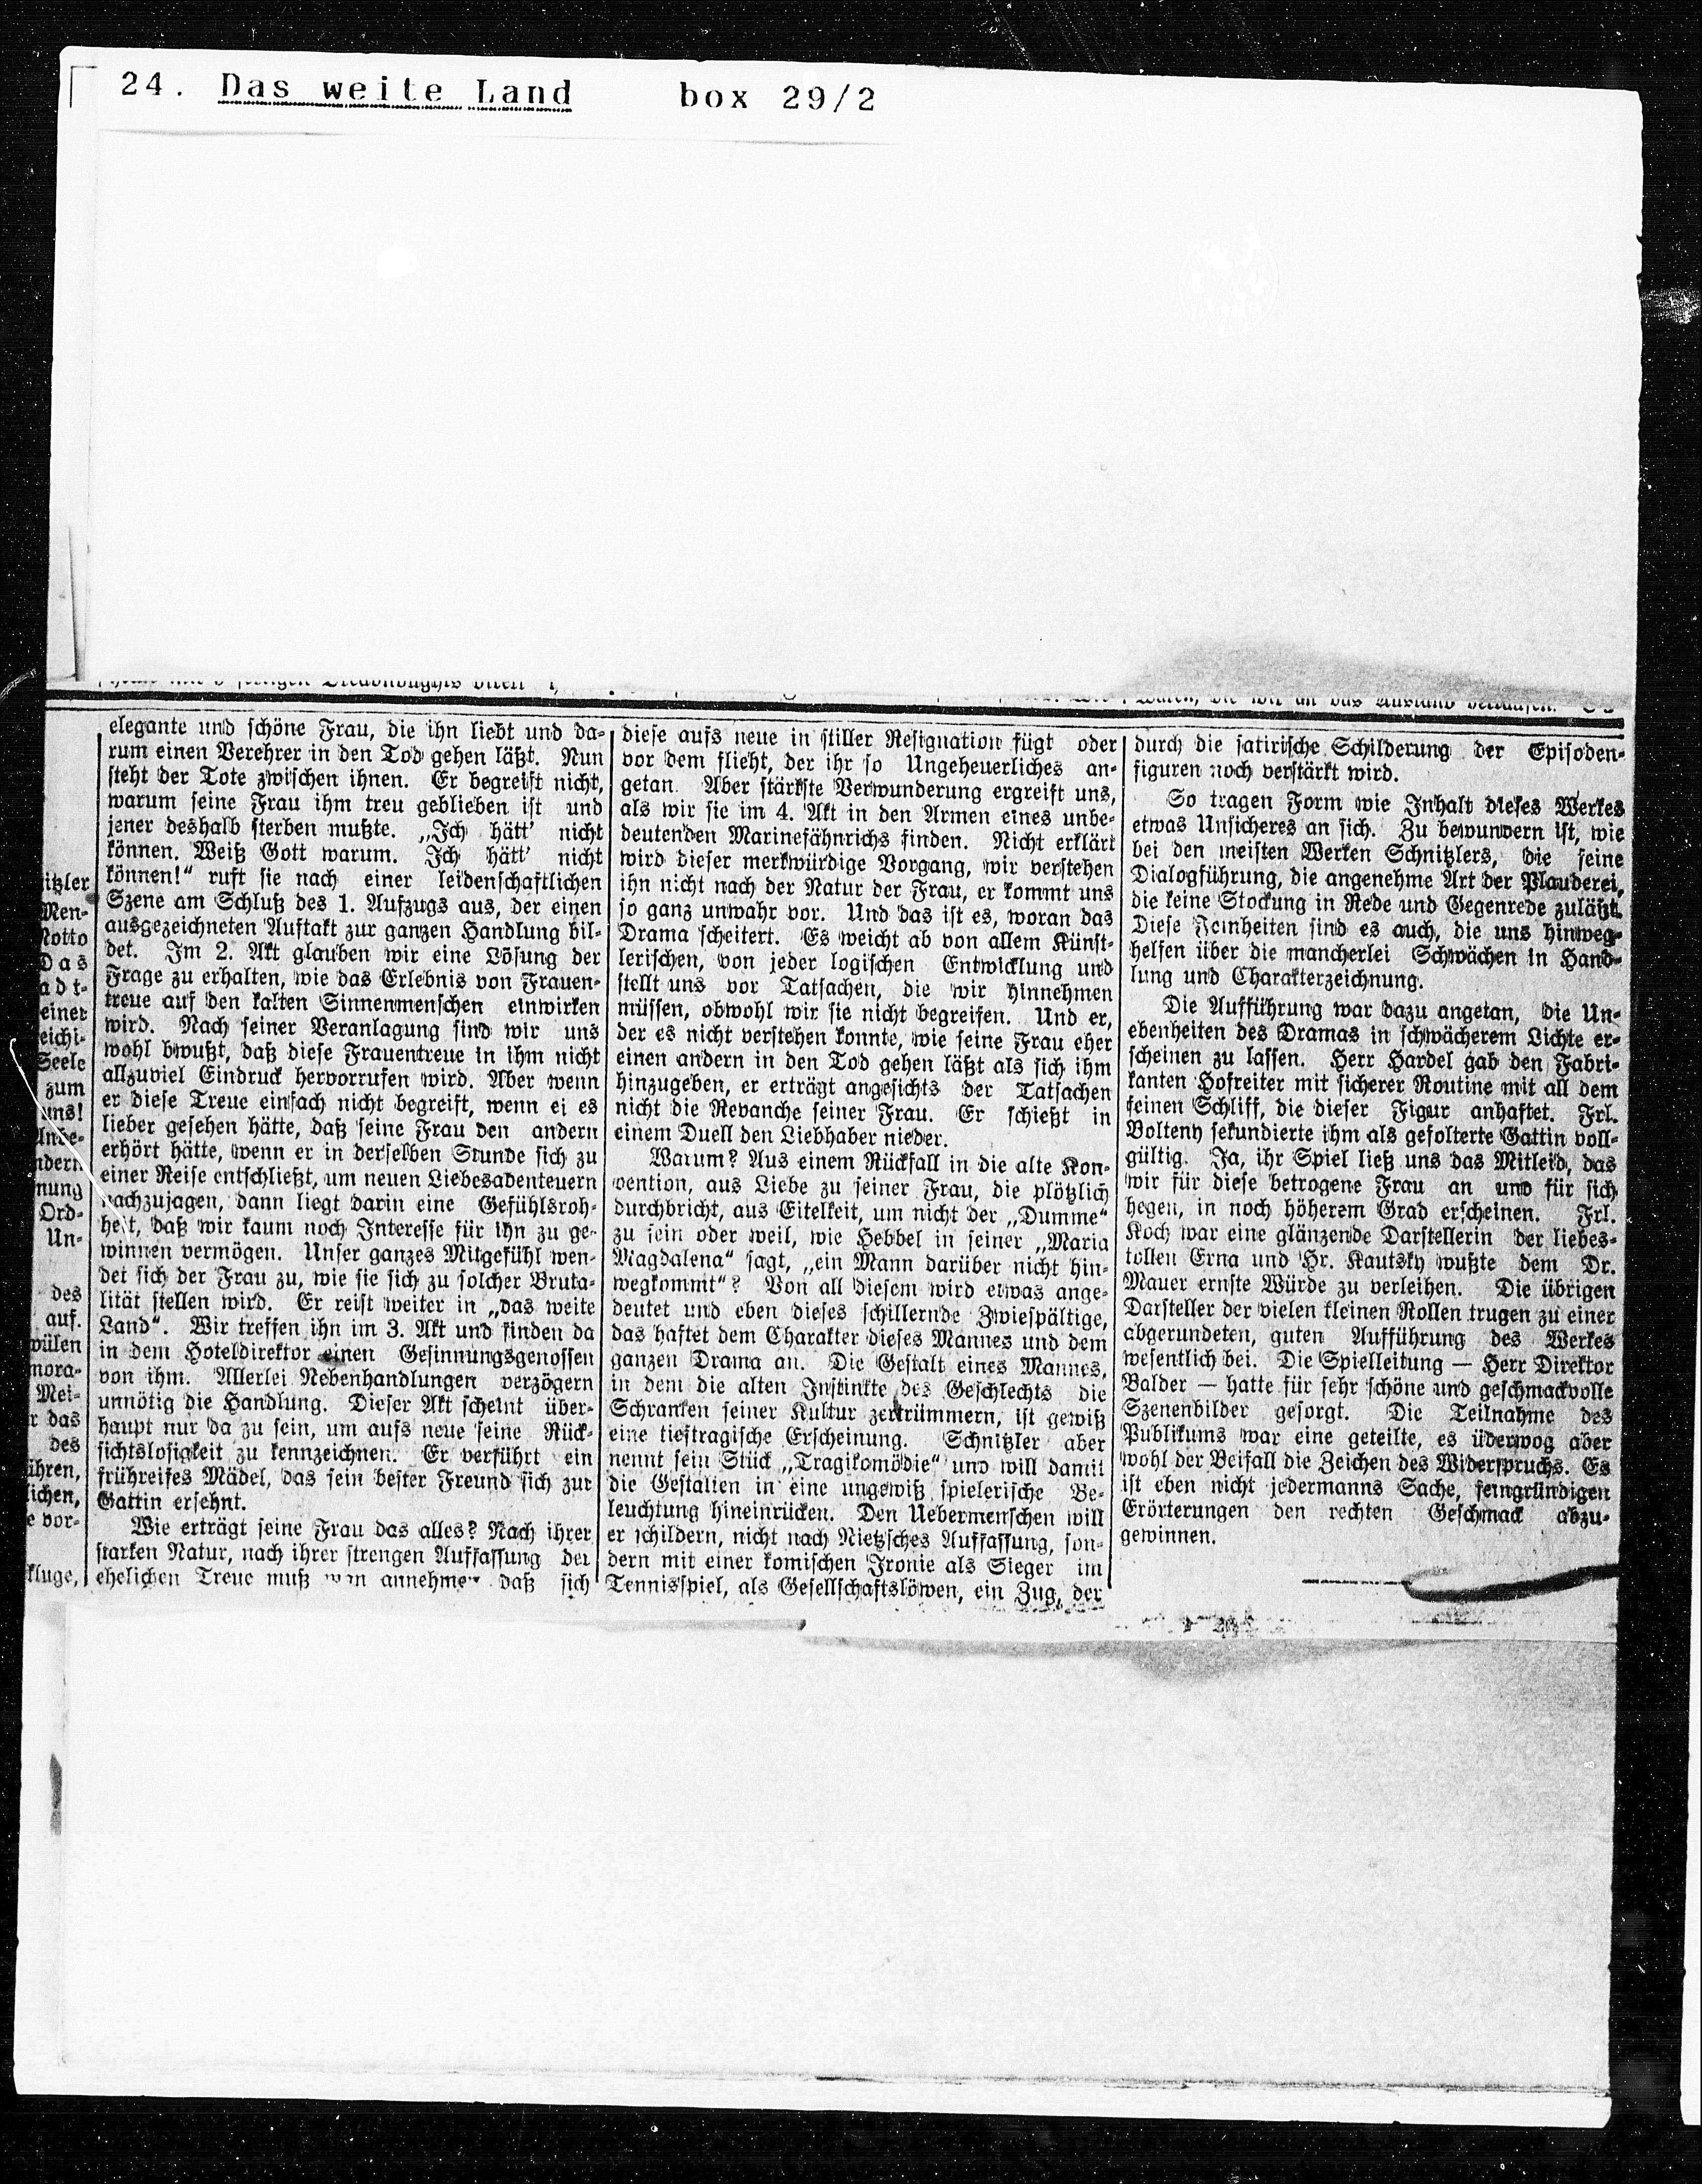 24. Das weite Land box 29/2
itzler
Men-
Notto
Das
adt-
einer
eichi-
Seele
zum
uns!
Anbe-
ndern
nung
Ord-
Un-
des
auf.
wülen
mora-
Mei-
r das
des
ühren,
lichen,
e vor-
kluge,
elegante und schöne Frau, die ihn liebt und da-
rum einen Verehrer in den Tod gehen läßt. Nun
steht der Tote zwischen ihnen. Er begreift nicht,
warum seine Frau ihm treu geblieben ist und
jener deshalb sterben mußte. „Ich hätt' nicht
können. Weiß Gott warum. Ich hätt' nicht
können!“ ruft sie nach einer leidenschaftlichen
Szene am Schluß des 1. Aufzugs aus, der einen
ausgezeichneten Auftakt zur ganzen Handlung bil-
det. Im 2. Akt glauben wir eine Lösung der
Frage zu erhalten, wie das Erlebnis von Frauen-
treue auf den kalten Sinnenmenschen einwirken
wird. Nach seiner Veranlagung sind wir uns
wohl bwußt, daß diese Frauentreue in ihm nicht
allzuviel Eindruck hervorrufen wird. Aber wenn
er diese Treue einfach nicht begreift, wenn ei es
lieber gesehen hätte, daß seine Frau den andern
erhört hätte, wenn er in derselben Stunde sich zu
einer Reise entschließt, um neuen Liebesabenteuern
nachzujagen, dann liegt darin eine Gefühlsroh-
heit, daß wir kaum noch Interesse für ihn zu ge-
winnen vermögen. Unser ganzes Mitgefühl wen-
det sich der Frau zu, wie sie sich zu solcher Bruta-
lität stellen wird. Er reist weiter in „das weite
Land“. Wir treffen ihn im 3. Akt und finden da
in dem Hoteldirektor einen Gesinnungsgenossen
von ihm. Allerlei Nebenhandlungen verzögern
unnötig die Handlung. Dieser Akt scheint über-
haupt nur da zu sein, um aufs neue seine Rück-
sichtslosigkeit zu kennzeichnen. Er verführt ein
frühreifes Mädel, das sein bester Freund sich zur
Gattin ersehnt.
Wie erträgt seine Frau das alles? Nach ihrer
starken Natur, nach ihrer strengen Auffassung der
ehelichen Treue muß man annehmen daß sich
diese aufs neue in stiller Resignation fügt oder
vor dem flieht, der ihr so Ungeheuerliches an-
getan. Aber stärkste Verwunderung ergreift uns,
als wir sie im 4. Akt in den Armen eines unbe-
deutenden Marinefähnrichs finden. Nicht erklärt
wird dieser merkwürdige Vorgang, wir verstehen
ihn nicht nach der Natur der Frau, er kommt uns
so ganz unwahr vor. Und das ist es, woran das
Drama scheitert. Es weicht ab von allem Künst-
lerischen, von jeder logischen Entwicklung und
stellt uns vor Tatsachen, die wir hinnehmen
müssen, obwohl wir sie nicht begreifen. Und er,
der es nicht verstehen konnte, wie seine Frau eher
einen andern in den Tod gehen läßt als sich ihm
hinzugeben, er erträgt angesichts der Tatsachen
nicht die Revanche seiner Frau. Er schießt in
einem Duell den Liebhaber nieder.
Warum? Aus einem Rückfall in die alte Kon-
vention, aus Liebe zu seiner Frau, die plötzlich
durchbricht, aus Eitelkeit, um nicht der „Dumme“
zu sein oder weil, wie Hebbel in seiner „Maria
Magdalena“ sagt, „ein Mann darüber nicht hin-
wegkommt“? Von all diesem wird etwas ange-
deutet und eben dieses schillernde Zwiespältige,
das haftet dem Charakter dieses Mannes und dem
ganzen Drama an. Die Gestalt eines Mannes,
in dem die alten Instinkte des Geschlechts die
Schranken seiner Kultur zertrümmern, ist gewiß
eine tieftragische Erscheinung. Schnitzler aber
nennt sein Stück „Tragikomödie“ und will damit
die Gestalten in eine ungewiß spielerische Be-
leuchtung hineinrücken. Den Uebermenschen will
er schildern, nicht nach Nietzsches Auffassung, son-
dern mit einer komischen Ironie als Sieger im
Tennisspiel, als Gesellschaftslöwen, ein Zug, der
durch die satirische Schilderung der Episoden-
figuren noch verstärkt wird.
So tragen Form wie Inhalt dieses Werkes
etwas Unsicheres an sich. Zu bewundern ist, wie
bei den meisten Werken Schnitzlers, die feine
Dialogführung, die angenehme Art der Plauderei,
die keine Stockung in Rede und Gegenrede zuläßt.
Diese Feinheiten sind es auch, die uns hinweg-
helfen über die mancherlei Schwächen in Hand-
lung und Charakterzeichnung.
Die Aufführung war dazu angetan, die Un-
ebenheiten des Dramas in schwächerem Lichte er-
scheinen zu lassen. Herr Hardel gab den Fabri-
kanten Hofreiter mit sicherer Routine mit all dem
feinen Schliff, die dieser Figur anhaftet. Frl.
Bolteny sekundierte ihm als gefolterte Gattin voll-
gültig. Ja, ihr Spiel ließ uns das Mitleid, das
wir für diese betrogene Frau an und für sich
hegen, in noch höherem Grad erscheinen. Frl.
Koch war eine glänzende Darstellerin der liebes-
tollen Erna und Hr. Kautsky wußte dem Dr.
Mauer ernste Würde zu verleihen. Die übrigen
Darsteller der vielen kleinen Rollen trugen zu einer
abgerundeten, guten Aufführung des Werkes
wesentlich bei. Die Spielleitung — Herr Direktor
Balder — hatte für sehr schöne und geschmackvolle
Szenenbilder gesorgt. Die Teilnahme des
Publikums war eine geteilte, es überwog aber
wohl der Beifall die Zeichen des Widerspruchs. Es
ist eben nicht jedermanns Sache, feingründigen
Erörterungen den rechten Geschmack abzu-
gewinnen.